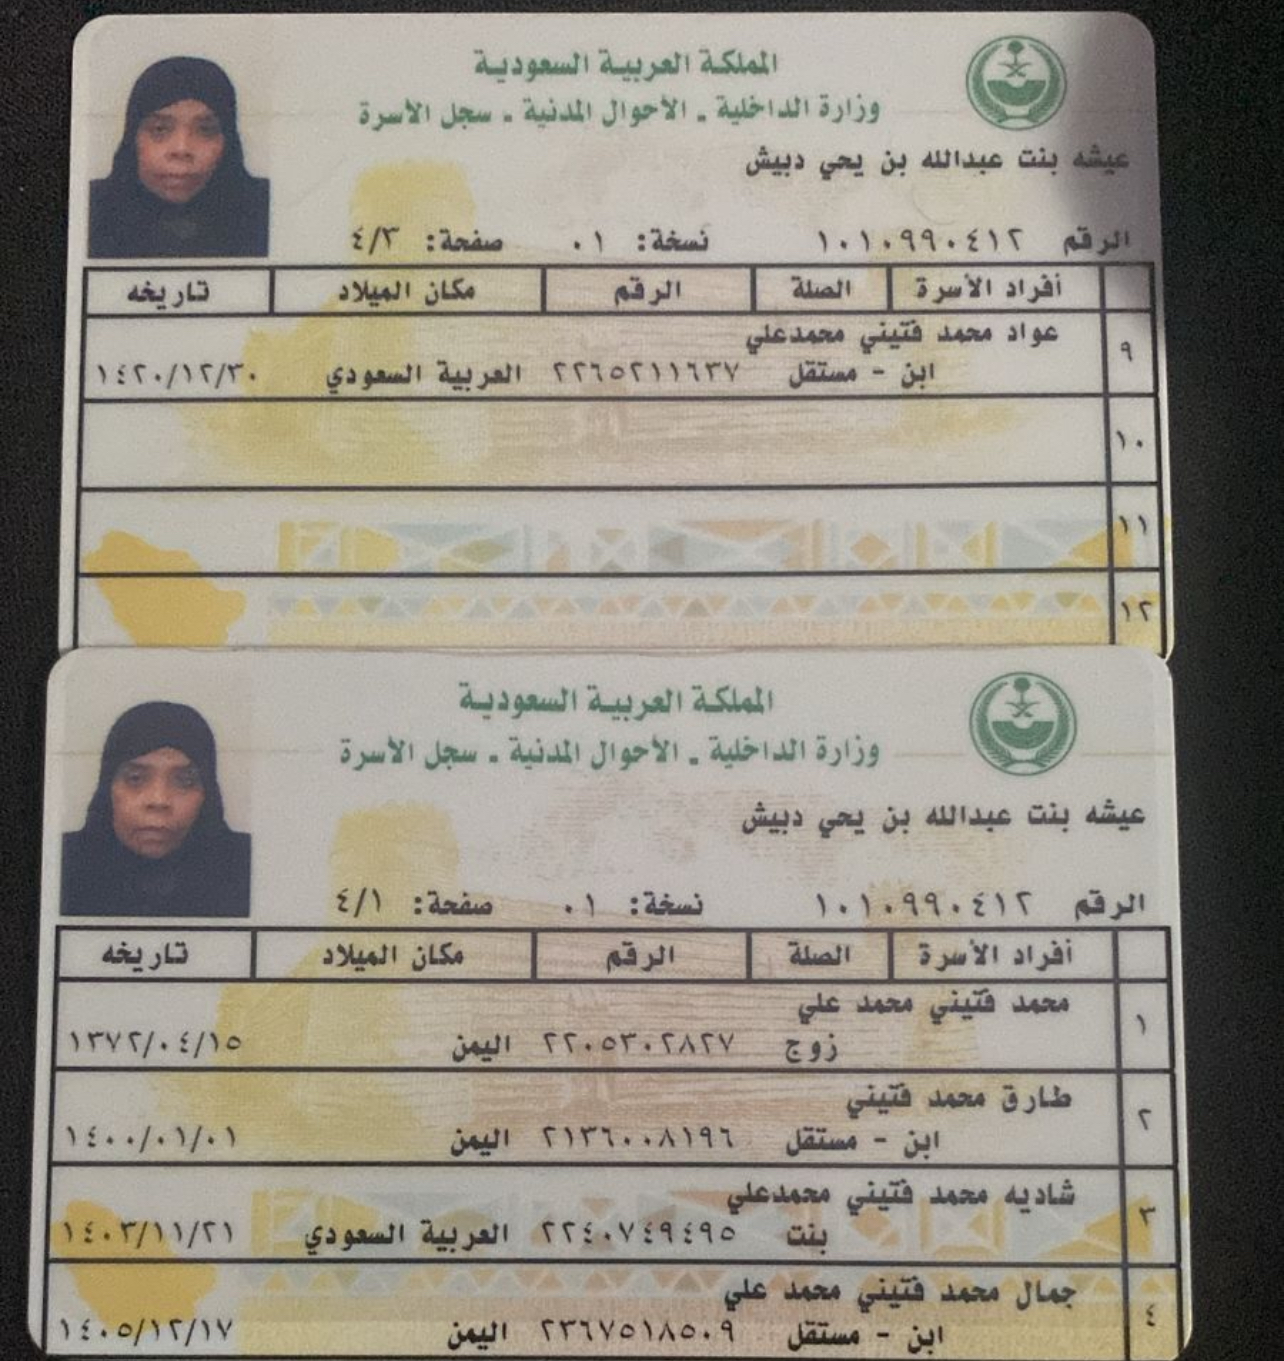 المملكة العربية السعودية
وزارة الداخلية - الأحوال المدنية - سجل الأسرة
عيشه بنت عبدالله بن يحي دبيش
الرقم ١٠١٠٩٩٠٤١٢ نسخة: ٠١ صفحة: ٤/٣
أفراد الأسرة الصلة الرقم مكان الميلاد تاريخه
٩ عواد محمد فتيني محمدعلي
ابن - مستقل ٢٢٦٥٢١١٦٣٧ العربية السعودي ١٤٢٠/١٢/٣٠
١٠
١١
١٢
المملكة العربية السعودية
وزارة الداخلية - الأحوال المدنية - سجل الأسرة
عيشه بنت عبدالله بن يحي دبيش
الرقم ١٠١٠٩٩٠٤١٢ نسخة: ٠١ صفحة: ٤/١
أفراد الأسرة الصلة الرقم مكان الميلاد تاريخه
١ محمد فتيني محمد علي
زوج ٢٢٠٥٣٠٢٨٢٧ اليمن ١٣٧٢/٠٤/١٥
٢ طارق محمد فتيني
ابن - مستقل ٢١٣٦٠٠٨١٩٦ اليمن ١٤٠٠/٠١/٠١
٣ شاديه محمد فتيني محمدعلي
بنت ٢٢٤٠٧٤٩٤٩٥ العربية السعودي ١٤٠٣/١١/٢١
٤ جمال محمد فتيني محمد علي
ابن - مستقل ٢٣٦٧٥١٨٥٠٩ اليمن ١٤٠٥/١٢/١٧